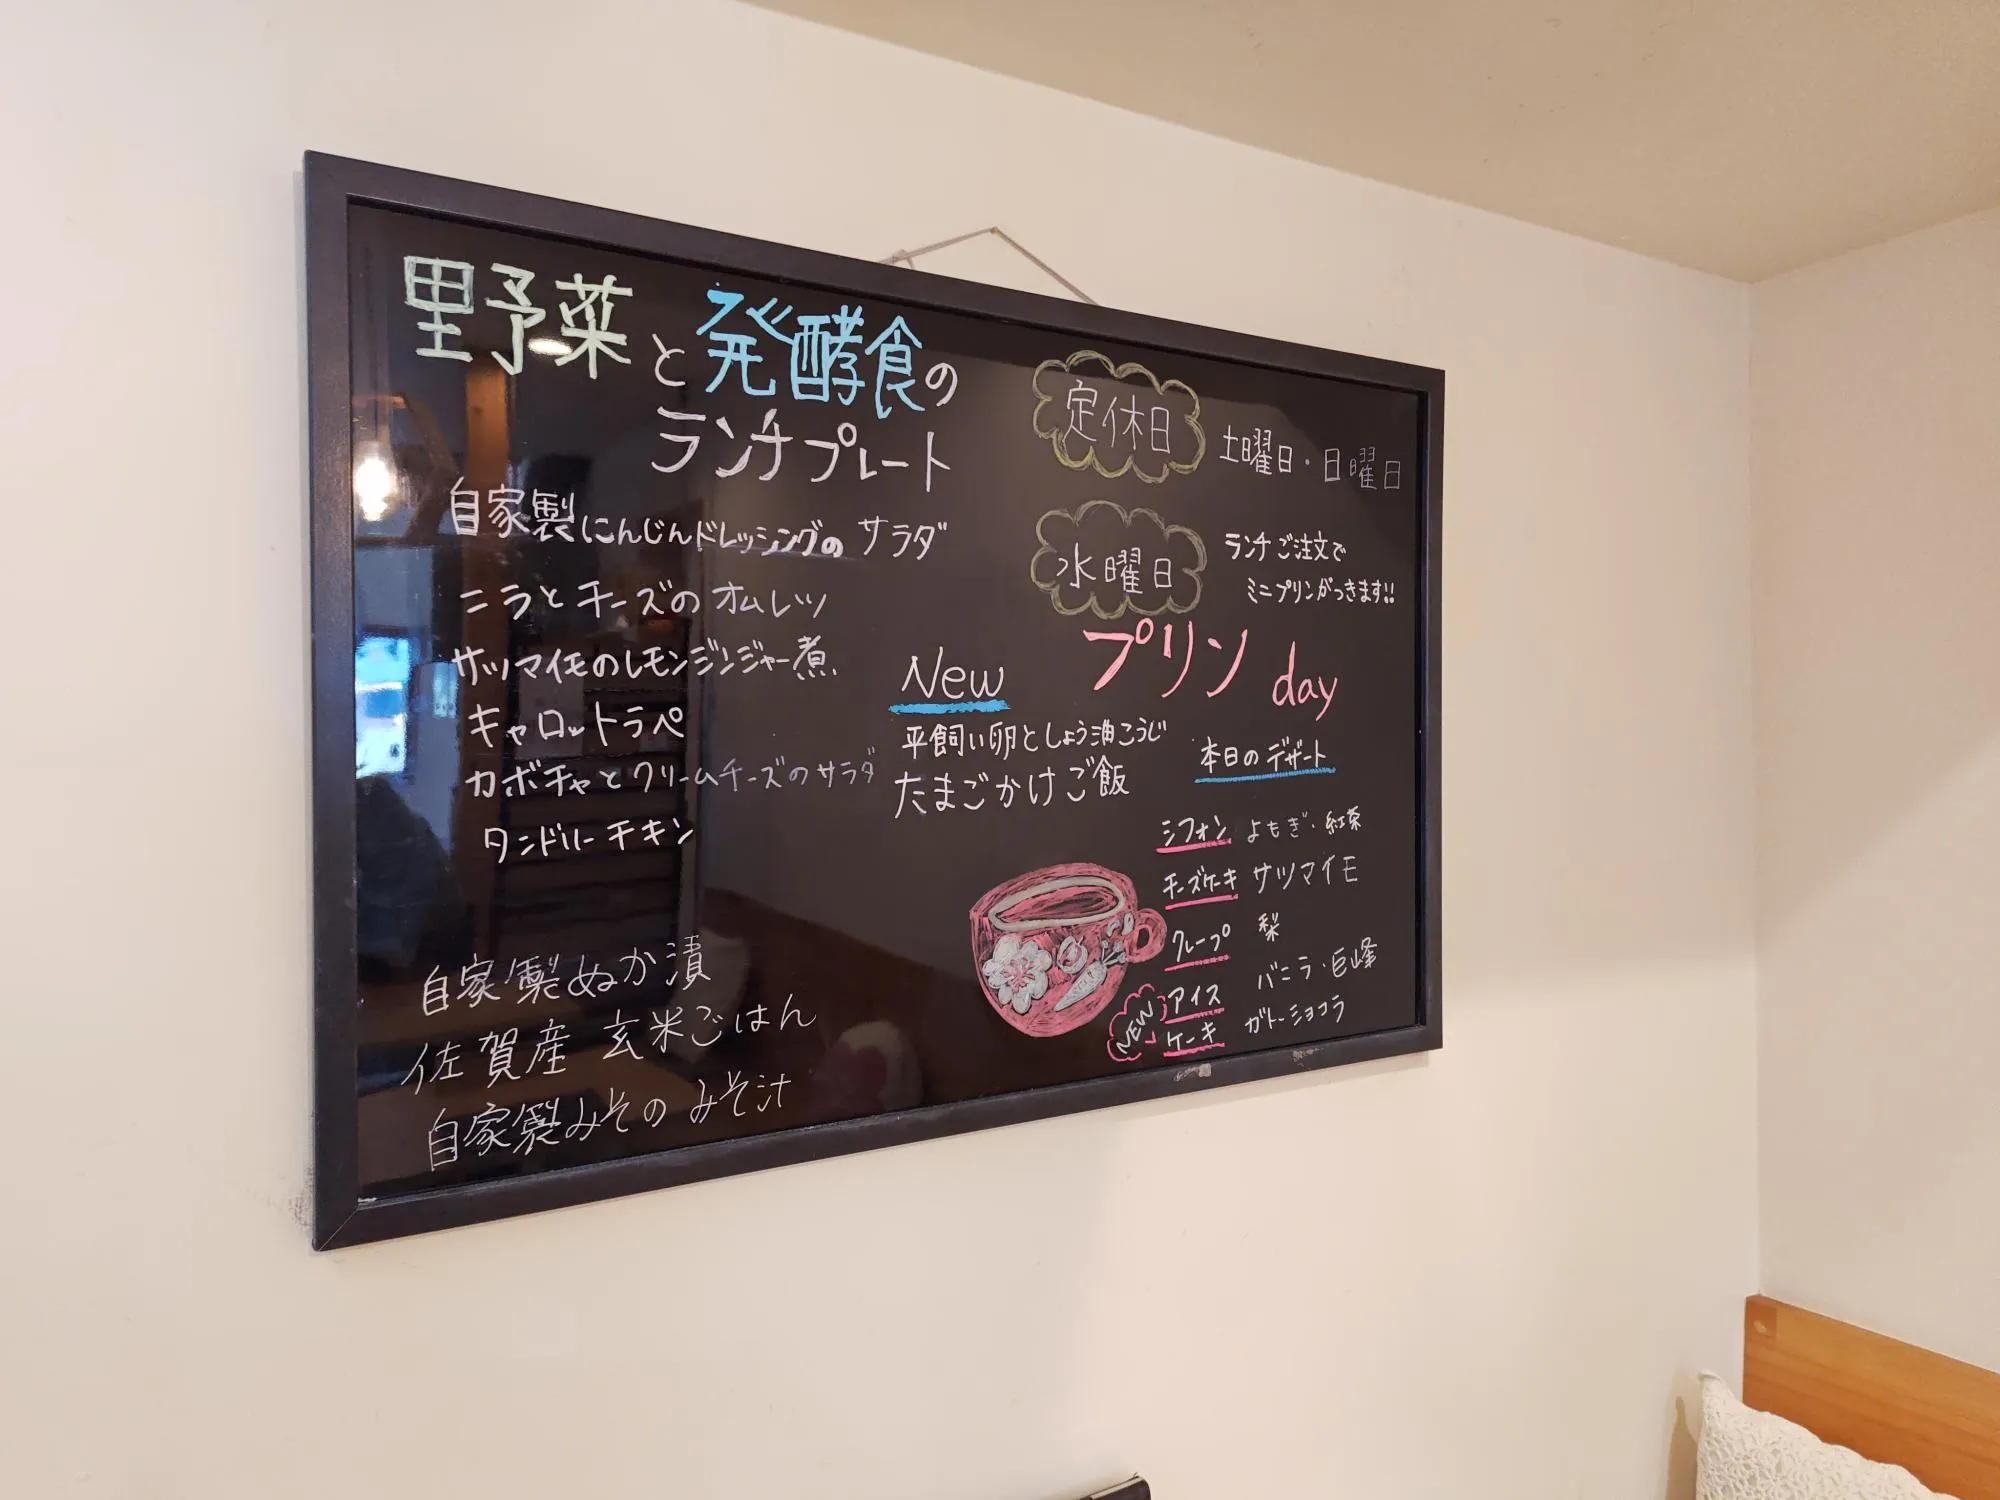 野菜と発酵食の
ランチプレート
自家製にんじんドレッシングの サラダ
ニラとチーズのオムレツ
サツマイモのレモンジンジャー煮
キャロットラペ
カボチャとクリームチーズのサラダ
タンドリーチキン
自家製ぬか漬
佐賀産 玄米ごはん
自家製みその みそ汁
定休日 土曜日・日曜日
水曜日 ランチご注文で
ミニプリンがつきます!!
プリン day
New
平飼い卵としょう油こうじ
たまごかけご飯
本日のデザート
シフォン よもぎ・紅茶
チーズケーキ サツマイモ
クレープ 梨
アイス バニラ・巨峰
NEW ケーキ ガトーショコラ